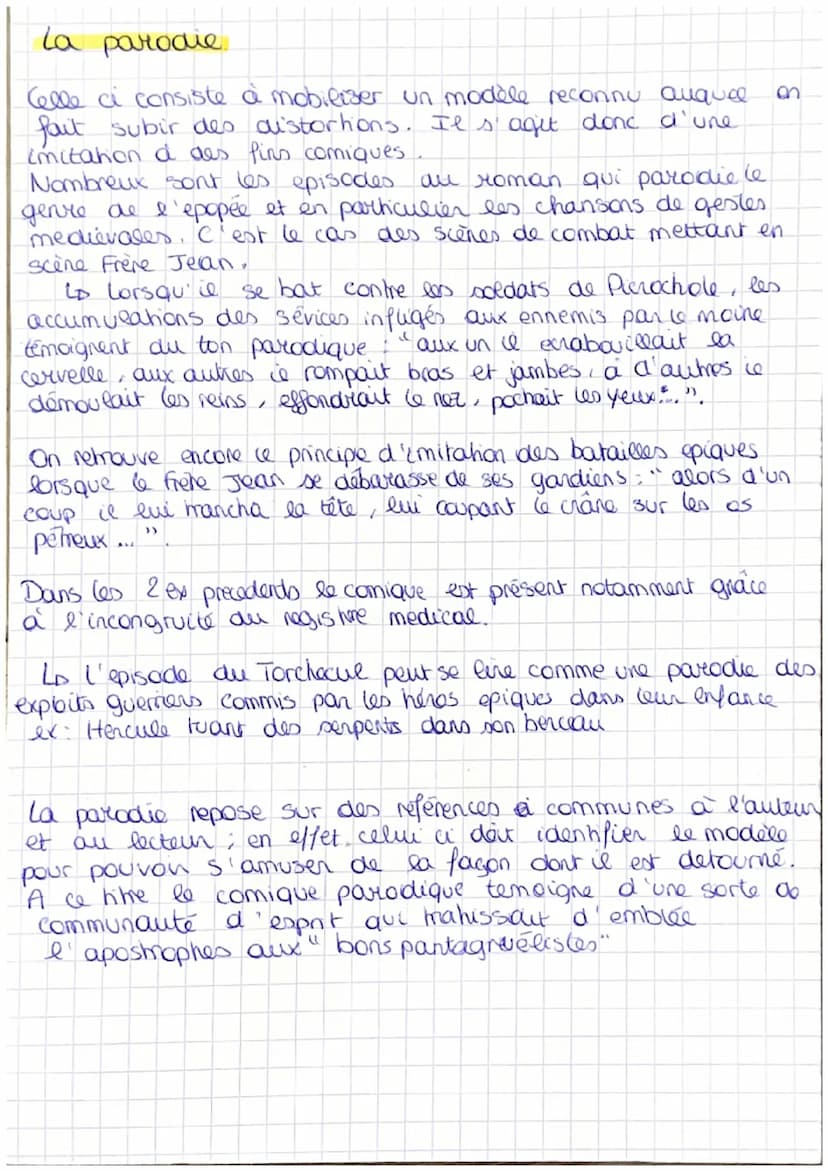 La parodie.
Celle ci consiste à mobiliser un modèle reconnu auquel on
fait subir des distorhions. Il s'agit donc d'une
imitation à des fins comiques.
Nombreux sont les episodes du roman qui parodie le
genre de l'epopée et en particulier les chansons de gestes
medievales. C'est le cas des scènes de combat mettant en
scène Frère Jean.
↳ Lorsqu'il se bat contre les soldats de Picrochole, les
accumulations des sévices infligés aux ennemis par le moine
témoignent du ton parodique : "aux un il écrabouillait la
cervelle, aux autres il rompait bras et jambes, à d'autres il
démoulait les reins, effondrait le nez, pochait les yeux...".
On retrouve encore ce principe d'imitation des batailles epiques
lorsque le frère Jean se débarasse de ses gardiens : "alors d'un
coup il lui trancha la tête, lui coupant le crâne sur les os
pétreux ...".
Dans les 2 ex precedents le comique est présent notamment grâce
à l'incongruité du registre medical.
↳ L'episode du Torchecul peut se lire comme une parodie des
exploits guerriers commis par les héros epiques dans leur enfance
ex: Hercule tuant des serpents dans son berceau
La parodie repose sur des références communes à l'auteur
et au lecteur ; en effet celui ci doit identifier le modèle
pour pouvoir s'amuser de la façon dont il est detourné.
A ce titre le comique parodique temoigne d'une sorte de
communauté d'esprit qui trahissait d'emblée
l'apostrophes aux "bons pantagruélistes"